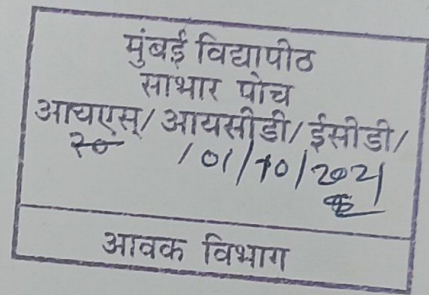 मुंबई विद्यापीठ
साभार पोच
आयएस्/ आयसीडी/ ईसीडी/
२० /01/10/2021
आवक विभाग